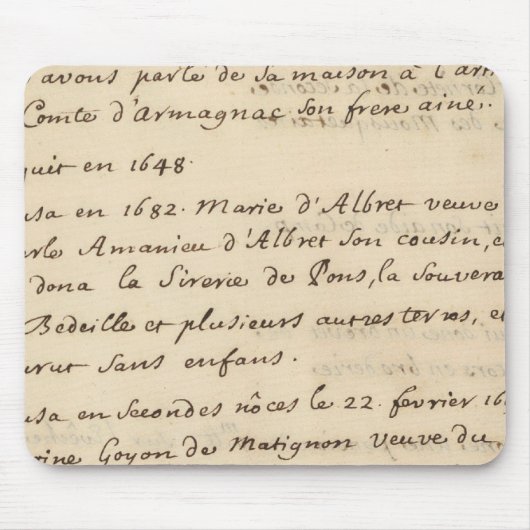 avons parlé de sa maison à l'ar
Comte d'Armagnac son frere ainé.
quit en 1648.
usa en 1682. Marie d'Albret veuve
arle Amanieu d'Albret son cousin, e
dona la Sirerie de Pons, la Souvera
Bedeille et plusieurs autres terres, et
urut sans enfans.
usa en secondes nôces le 22. fevrier 16
rine Goyon de Matignon veuve du